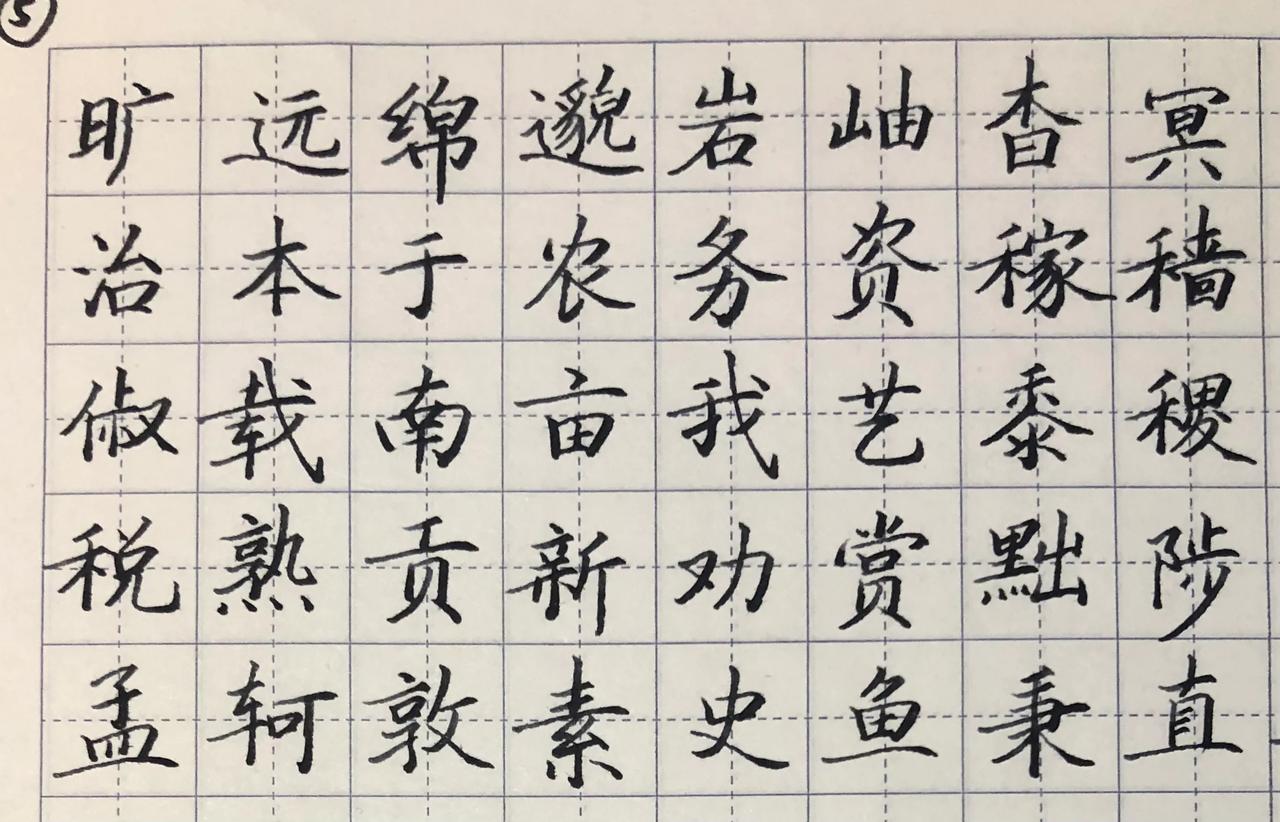 ⑤
旷远绵邈岩岫杳冥
治本于农务资稼穑
俶载南亩我艺黍稷
税熟贡新劝赏黜陟
孟轲敦素史鱼秉直